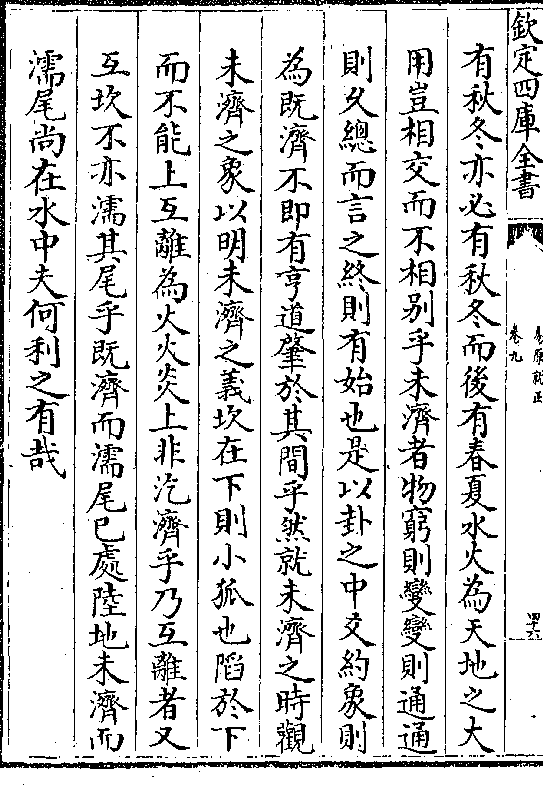 欽定四庫全書
易原就正
卷九
四十六
有秋冬亦必有秋冬而後有春夏水火為天地之大
用豈相交而不相别乎未濟者物窮則變變則通通
則久總而言之終則有始也是以卦之中爻約象則
為既濟不即有亨道肇於其間乎然就未濟之時觀
未濟之象以明未濟之義坎在下則小狐也陷於下
而不能上互離為火火炎上非汔濟乎乃互離者又
互坎不亦濡其尾乎既濟而濡尾已處陸地未濟而
濡尾尚在水中夫何利之有哉